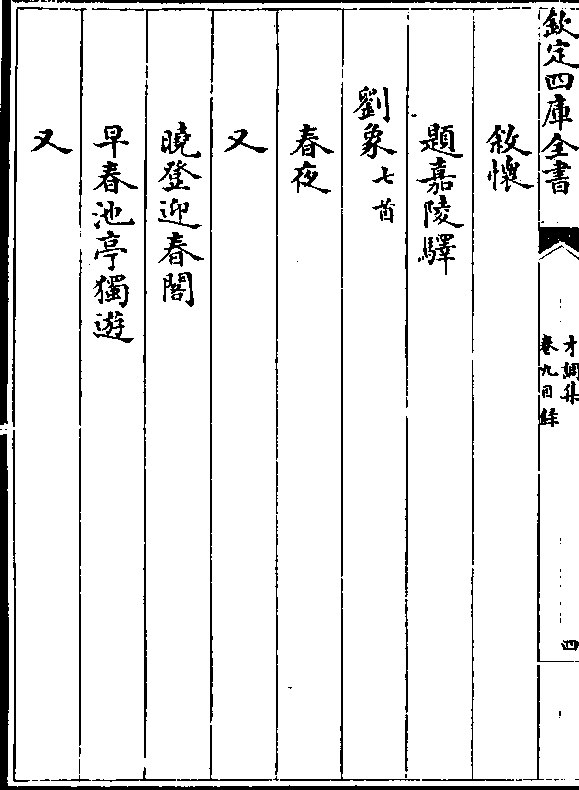 欽定四庫全書
才調集
卷九目錄
四
敘懷
題嘉陵驛
劉象七首
春夜
又
曉登迎春閣
早春池亭獨遊
又